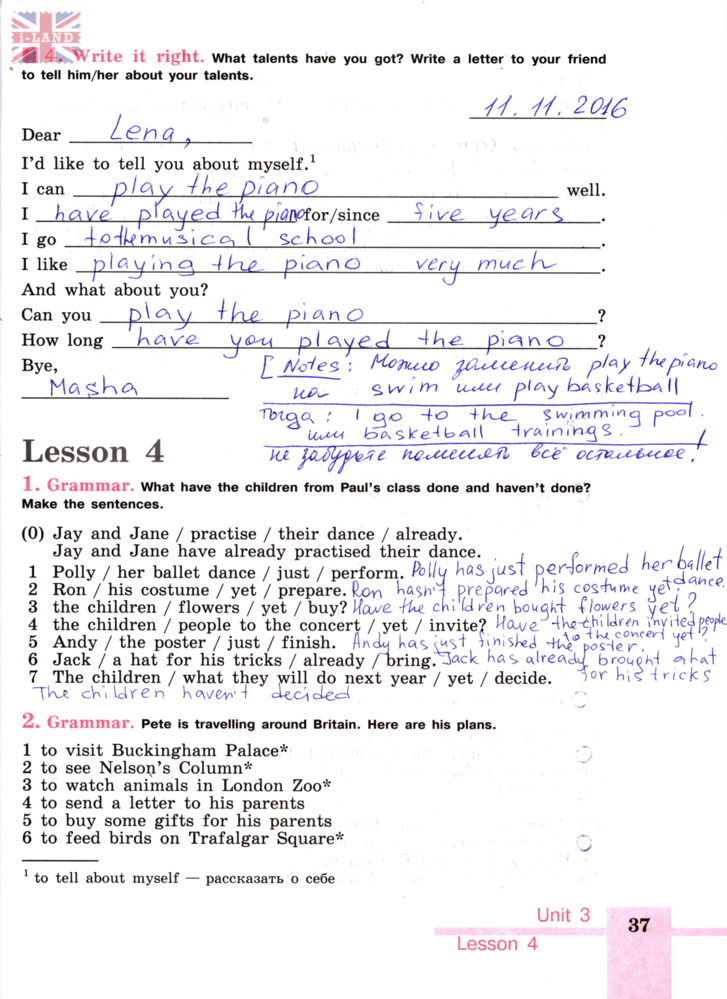 i-LAND
4. Write it right. What talents have you got? Write a letter to your friend
to tell him/her about your talents.
11. 11. 2016
Dear Lena,
I'd like to tell you about myself.¹
I can play the piano well.
I have played the piano for/since five years.
I go to the musical school.
I like playing the piano very much.
And what about you?
Can you play the piano?
How long have you played the piano?
Bye,
Masha
[Notes: Можно заменить play the piano
на swim или play basketball
тогда: I go to the swimming pool.
или basketball trainings.
не забудьте поменять всё остальное!
Lesson 4
1. Grammar. What have the children from Paul's class done and haven't done?
Make the sentences.
(0) Jay and Jane / practise / their dance / already.
Jay and Jane have already practised their dance.
1 Polly / her ballet dance / just / perform. Polly has just performed her ballet dance.
2 Ron / his costume / yet / prepare. Ron hasn't prepared his costume yet.
3 the children / flowers / yet / buy? Have the children bought flowers yet?
4 the children / people to the concert / yet / invite? Have the children invited people to the concert yet?
5 Andy / the poster / just / finish. Andy has just finished the poster.
6 Jack / a hat for his tricks / already / bring. Jack has already brought a hat for his tricks
7 The children / what they will do next year / yet / decide.
The children haven't decided
2. Grammar. Pete is travelling around Britain. Here are his plans.
1 to visit Buckingham Palace*
2 to see Nelson's Column*
3 to watch animals in London Zoo*
4 to send a letter to his parents
5 to buy some gifts for his parents
6 to feed birds on Trafalgar Square*
¹ to tell about myself — рассказать о себе
Unit 3
Lesson 4
37